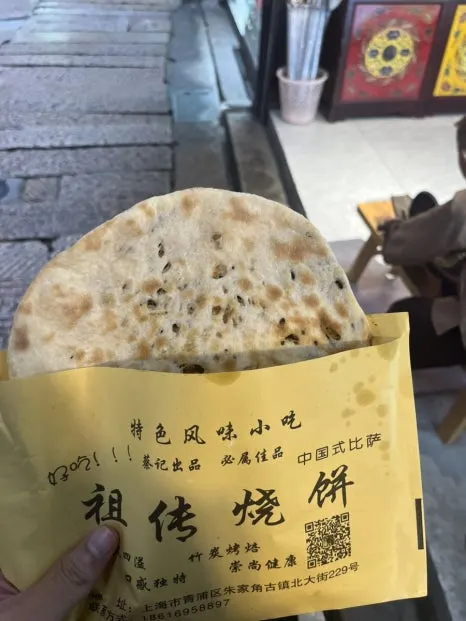 特色风味小吃
好吃!!!
蔡记出品 必属佳品 中国式比萨
祖传烧饼
四溢 竹炭烤焙
口感独特 崇尚健康
址:上海市青浦区朱家角古镇北大街229号
联系方式:18616958897